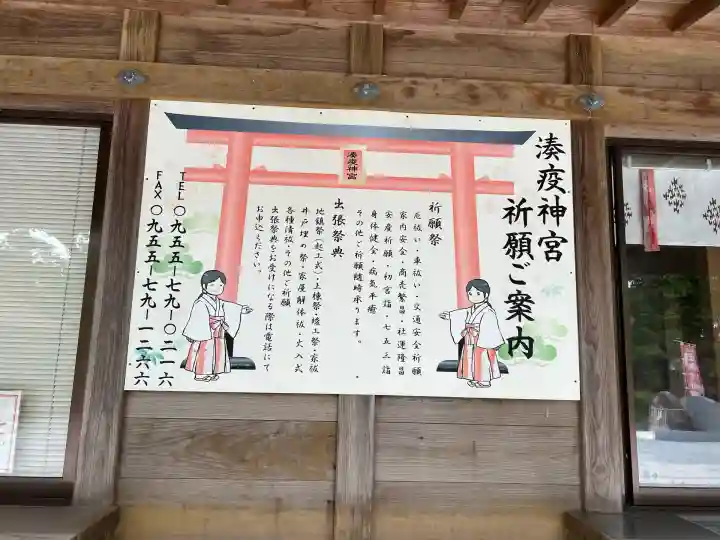 湊疫神宮
祈願ご案内
湊疫神宮
祈願祭
厄祓い・車祓い・交通安全祈願
家内安全・商売繁昌・社運隆昌
安産祈願・初宮詣・七五三詣
身体健全・病気平癒
その他ご祈願随時承ります。
出張祭典
地鎮祭（起工式）・上棟祭・竣工祭・家祓
井戸埋め祭・家屋解体祓・火入式
各種清祓・その他ご祈願
出張祭典をお受けになる際は電話にて
お申込ください。
TEL〇九五五ー七九ー〇二一六
FAX〇九五五ー七九ー一二六六